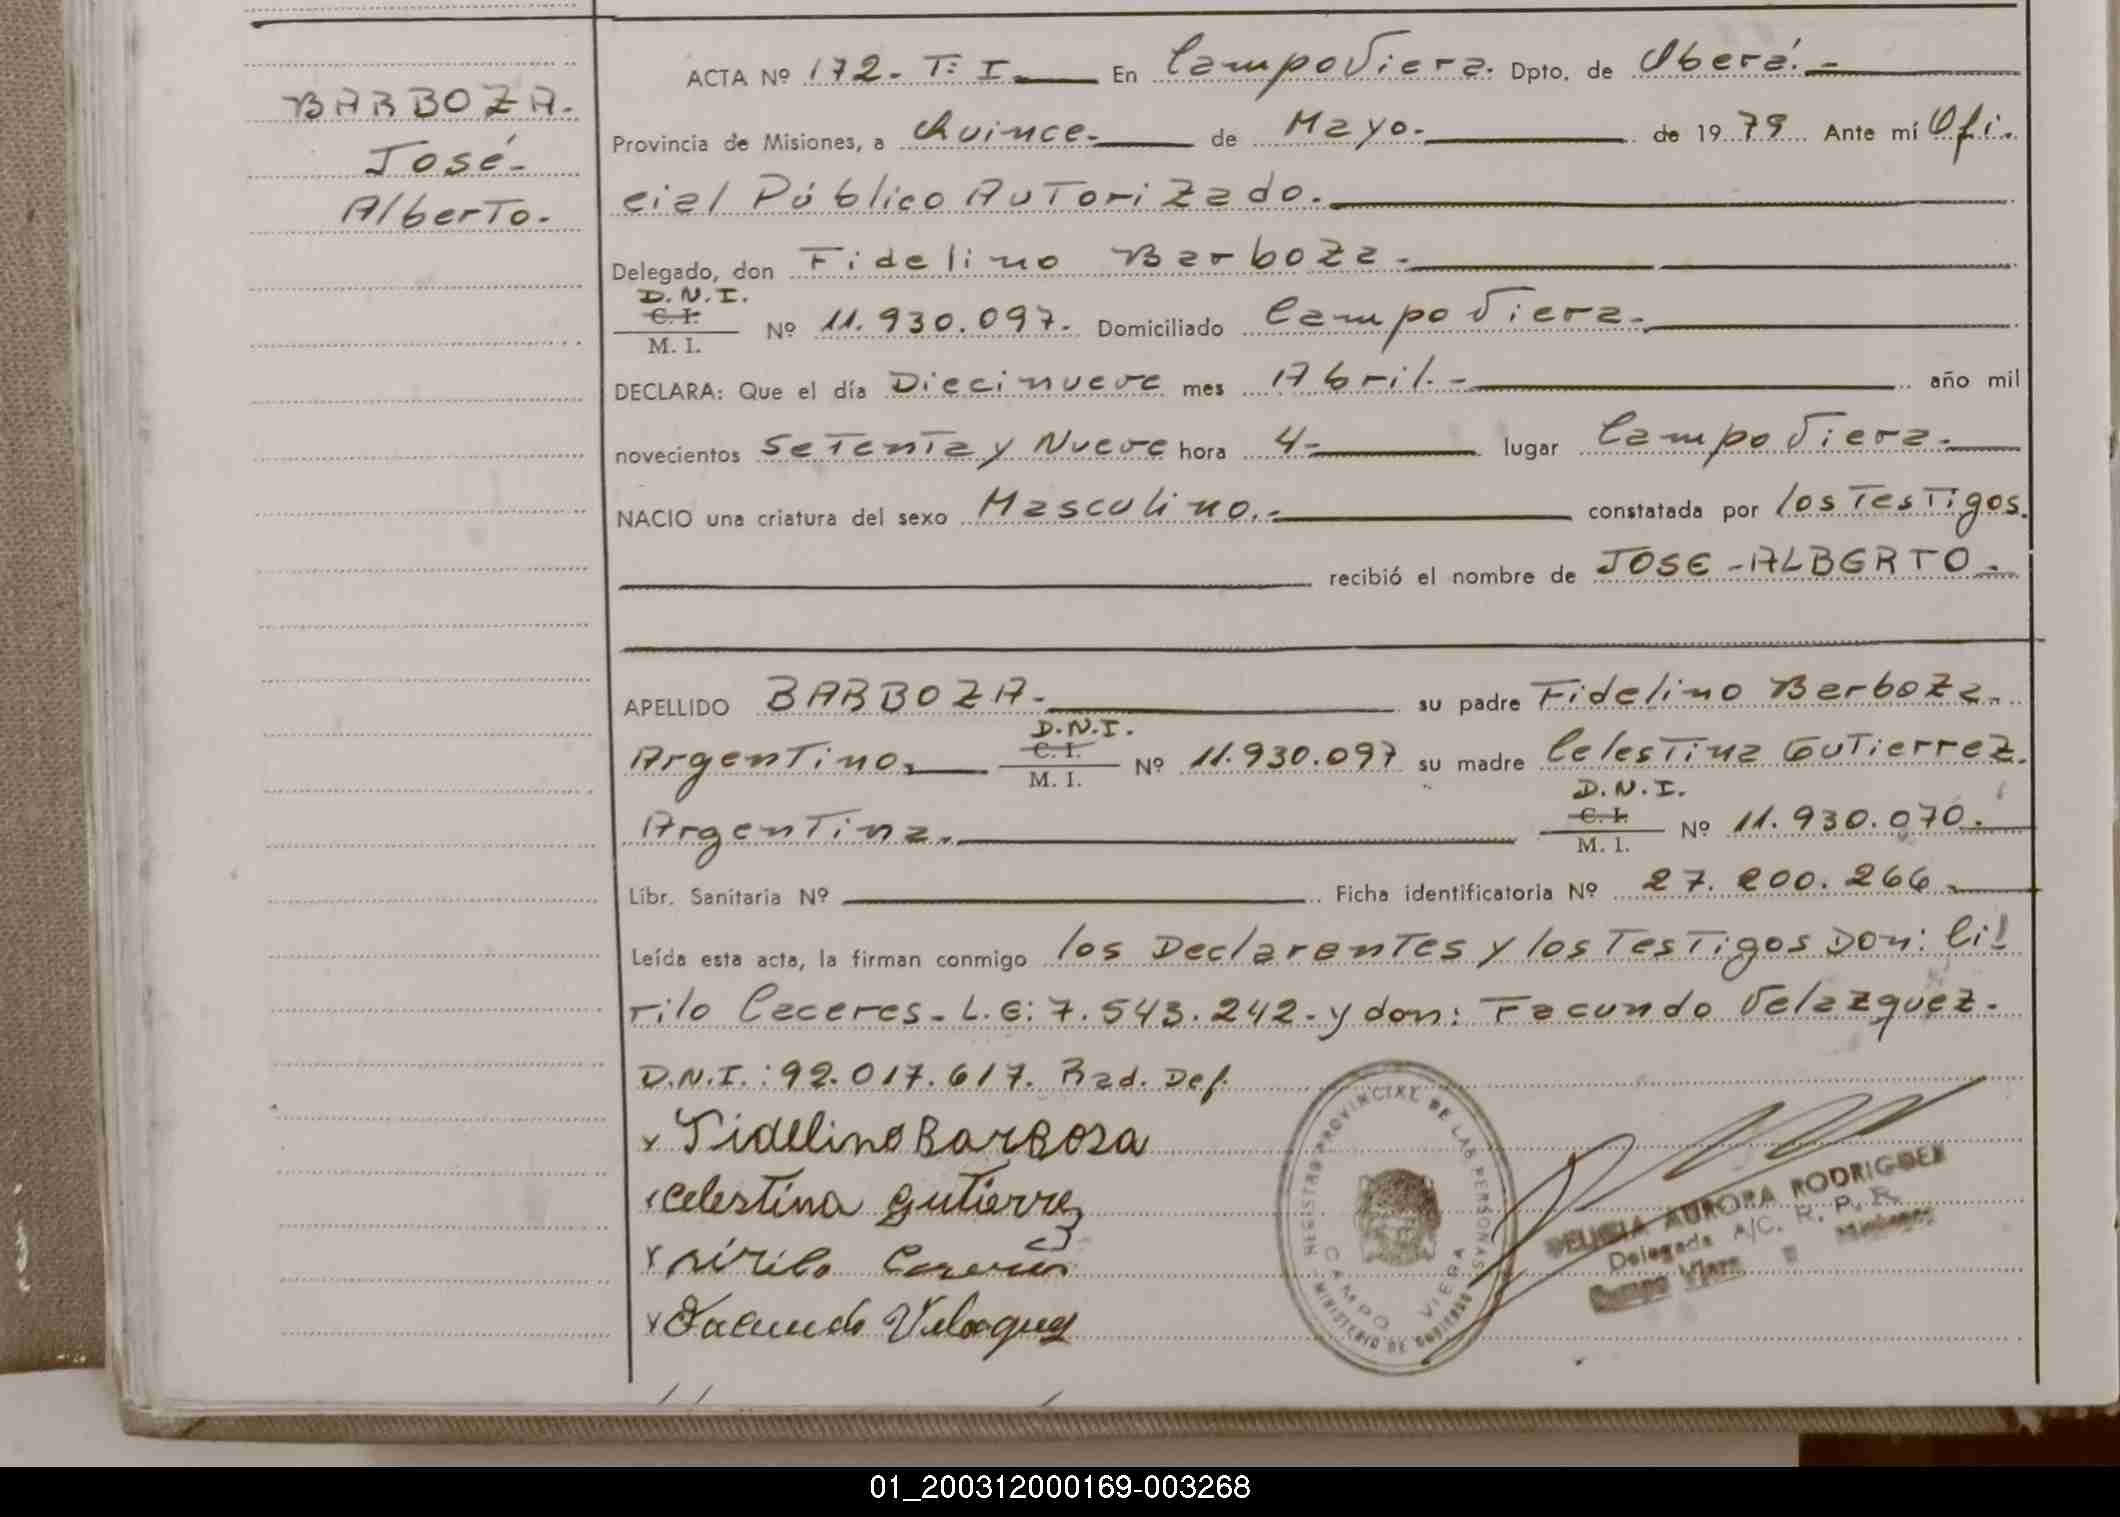 BARBOZA.
José-
Alberto.
ACTA Nº 172- T: I. En Campo Viera. Dpto. de Oberá.-
Provincia de Misiones, a Quince. de Mayo. de 1979 Ante mí Ofi.
cial Público Autorizado.
Delegado, don Fidelino Barboza.
D.N.I.
C. I.
M. I. Nº 11.930.097. Domiciliado Campo Viera.
DECLARA: Que el día Diecinueve mes Abril.- año mil
novecientos Setenta y Nueve hora 4- lugar Campo Viera.
NACIO una criatura del sexo Masculino.- constatada por los Testigos.
recibió el nombre de JOSE-ALBERTO.
APELLIDO BARBOZA- su padre Fidelino Barboza.
D.N.I.
Argentino. C. I. Nº 11.930.097 su madre Celestina Gutierrez.
M. I.
D.N.I.
Argentina. C. I. Nº 11.930.070.
M. I.
Libr. Sanitaria Nº Ficha identificatoria Nº 27.200.266.
Leída esta acta, la firman conmigo los Declarantes y los Testigos Don: Ci!
rilo Caceres- L.E: 7.543.242- y don: Facundo Velazquez-
D.N.I.: 92.017.617. Rad. Def.
x Fidelino Barbosa
Celestina Gutierrez
x sirilo Caceres
x Facundo Velazquez
REGISTRO PROVINCIAL DE LAS PERSONAS
CAMPO VIERA
MINISTERIO DE GOBIERNO
DELICIA AURORA RODRIGUEZ
Delegada A/C. R. P. P.
Campo Viera Misiones
01_200312000169-003268